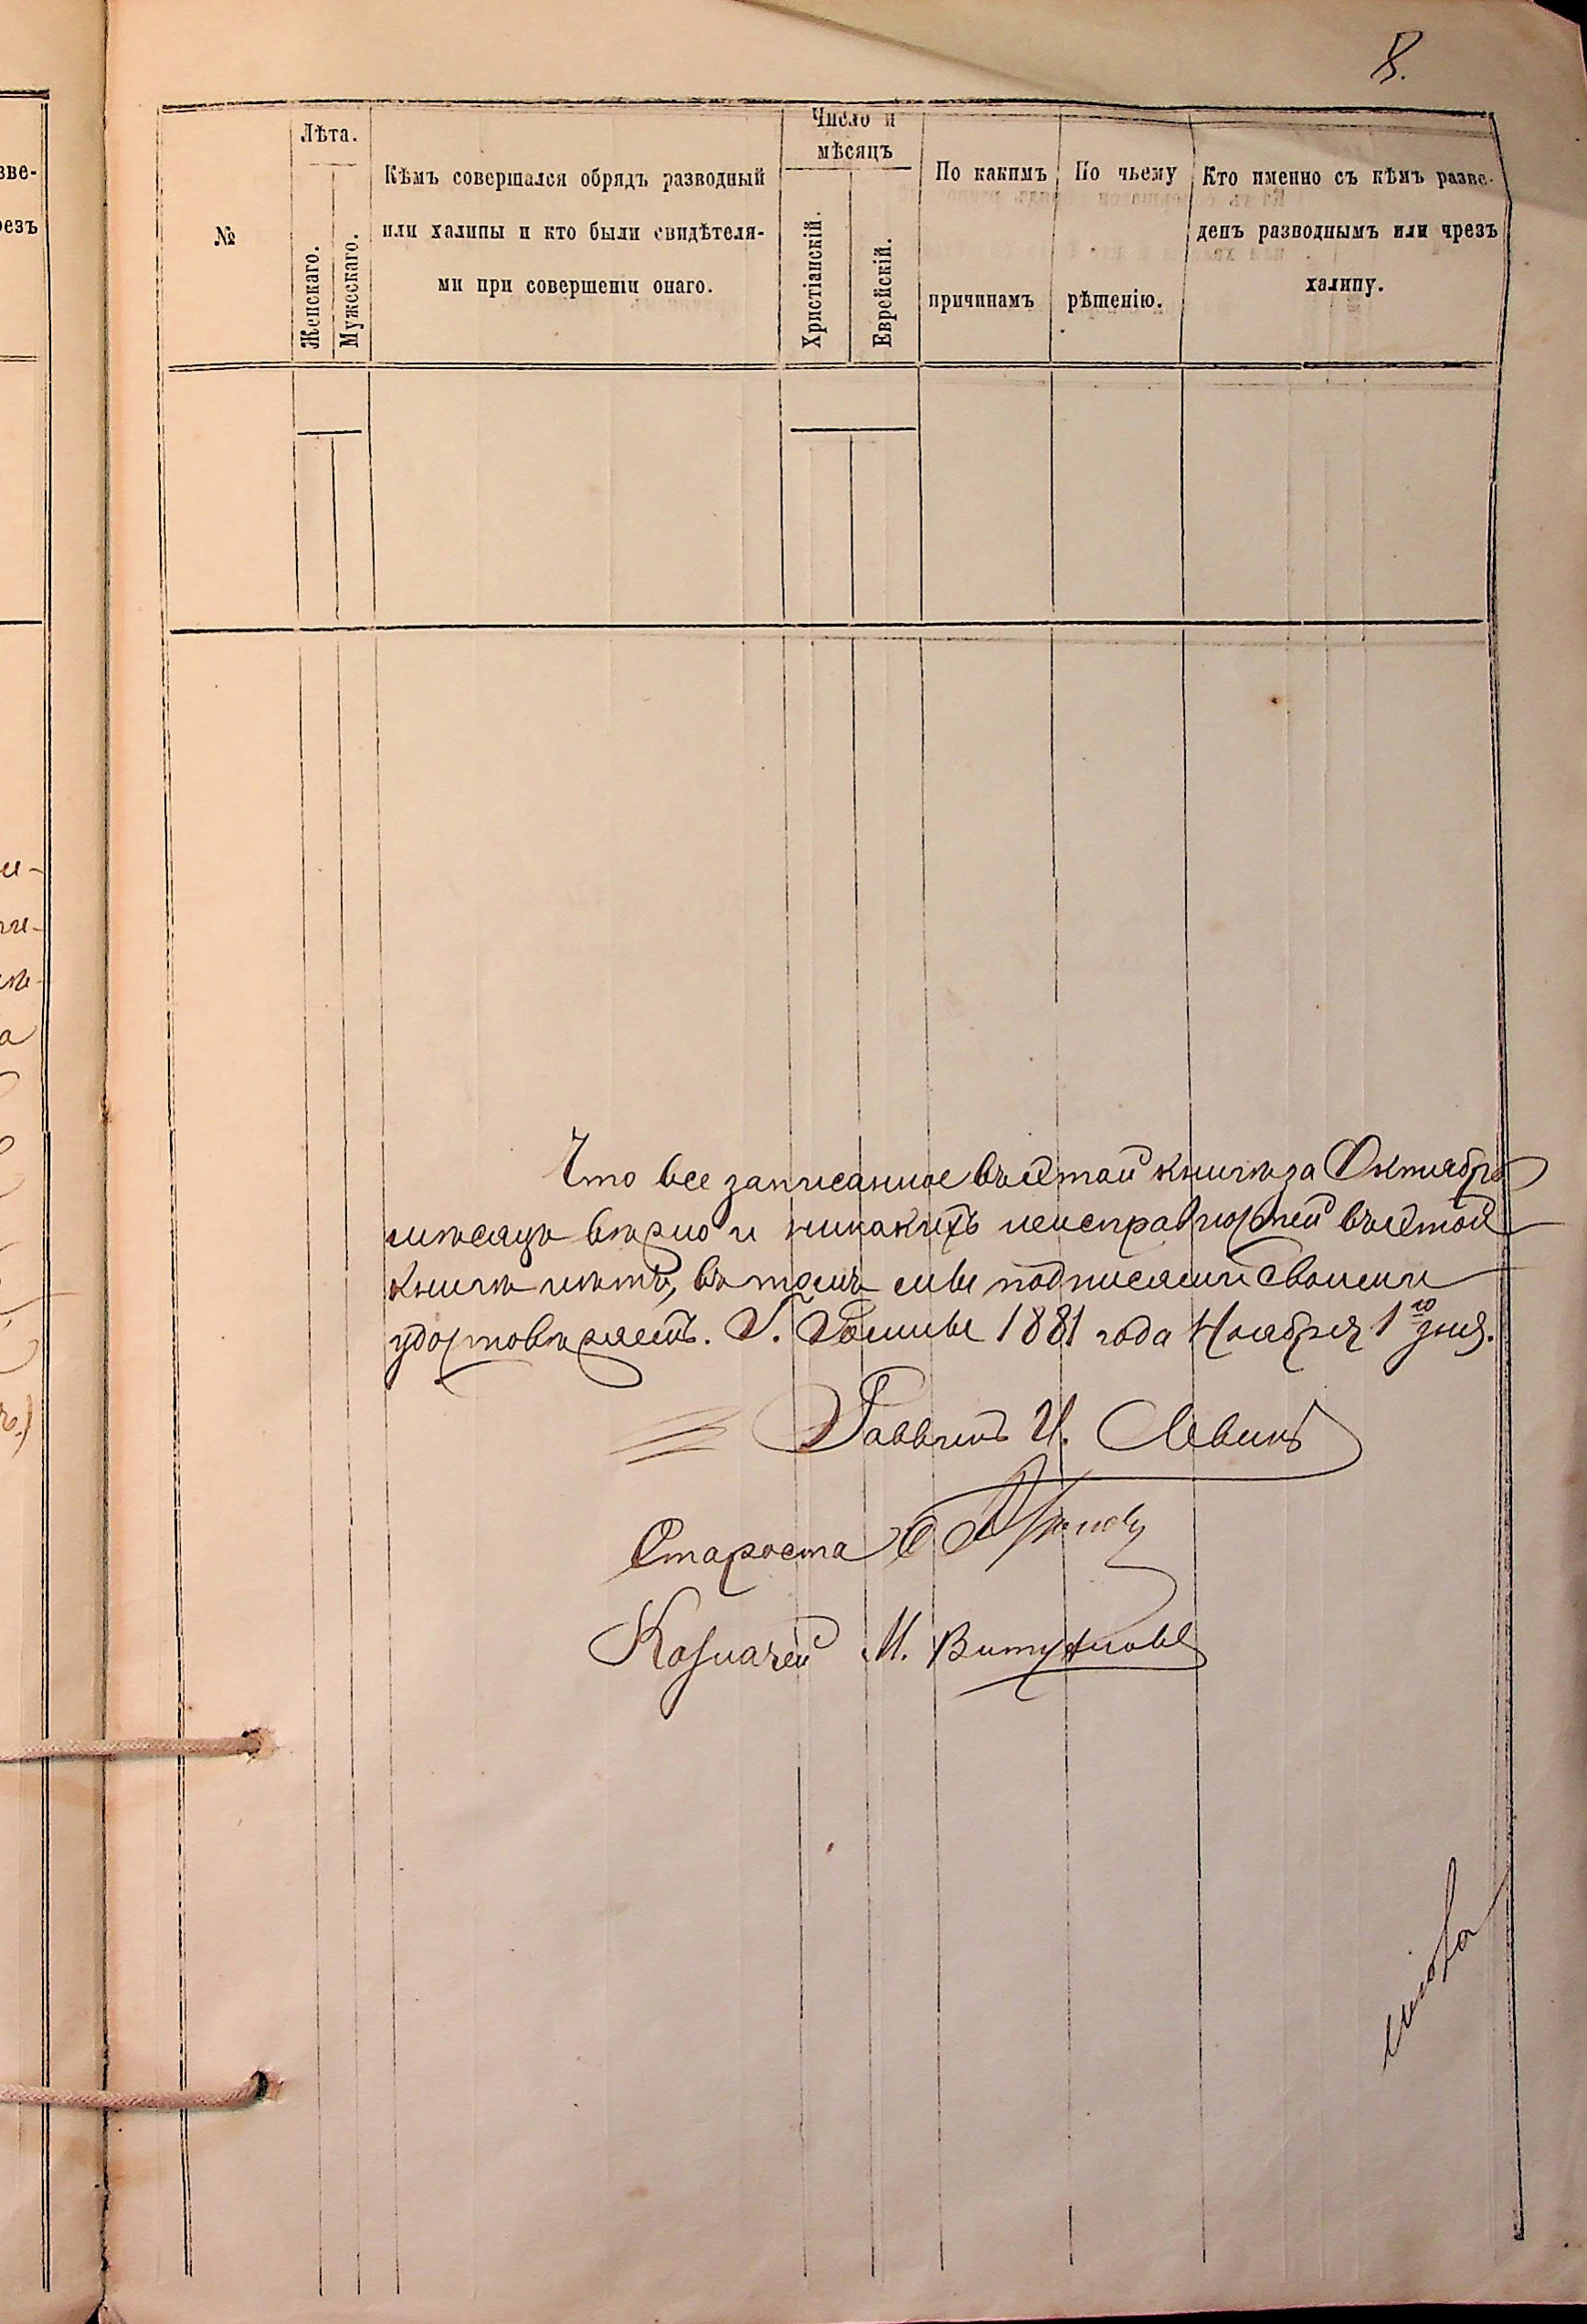 8.
№
Лѣта.
Женскаго.
Мужескаго.
Кѣмъ совершался обрядъ разводный
или халицы и кто были свидѣтеля-
ми при совершеніи онаго.
Число и
мѣсяцъ
Христіанскій.
Еврейскій.
По какимъ
причинамъ
По чьему
рѣшенію.
Кто именно съ кѣмъ разве-
денъ разводнымъ или чрезъ
халицу.
зве-
резъ
Что все записанное въ етой книгѣ за Октябрь
мѣсяцъ вѣрно и никакихъ неисправностей въ етой
книгѣ нѣтъ, въ томъ мы подписями своими
удостовѣряемъ. Г. Ромны 1881 года Ноября 1го дня.
Раввинъ И. Левинъ
Староста
Казначей М.